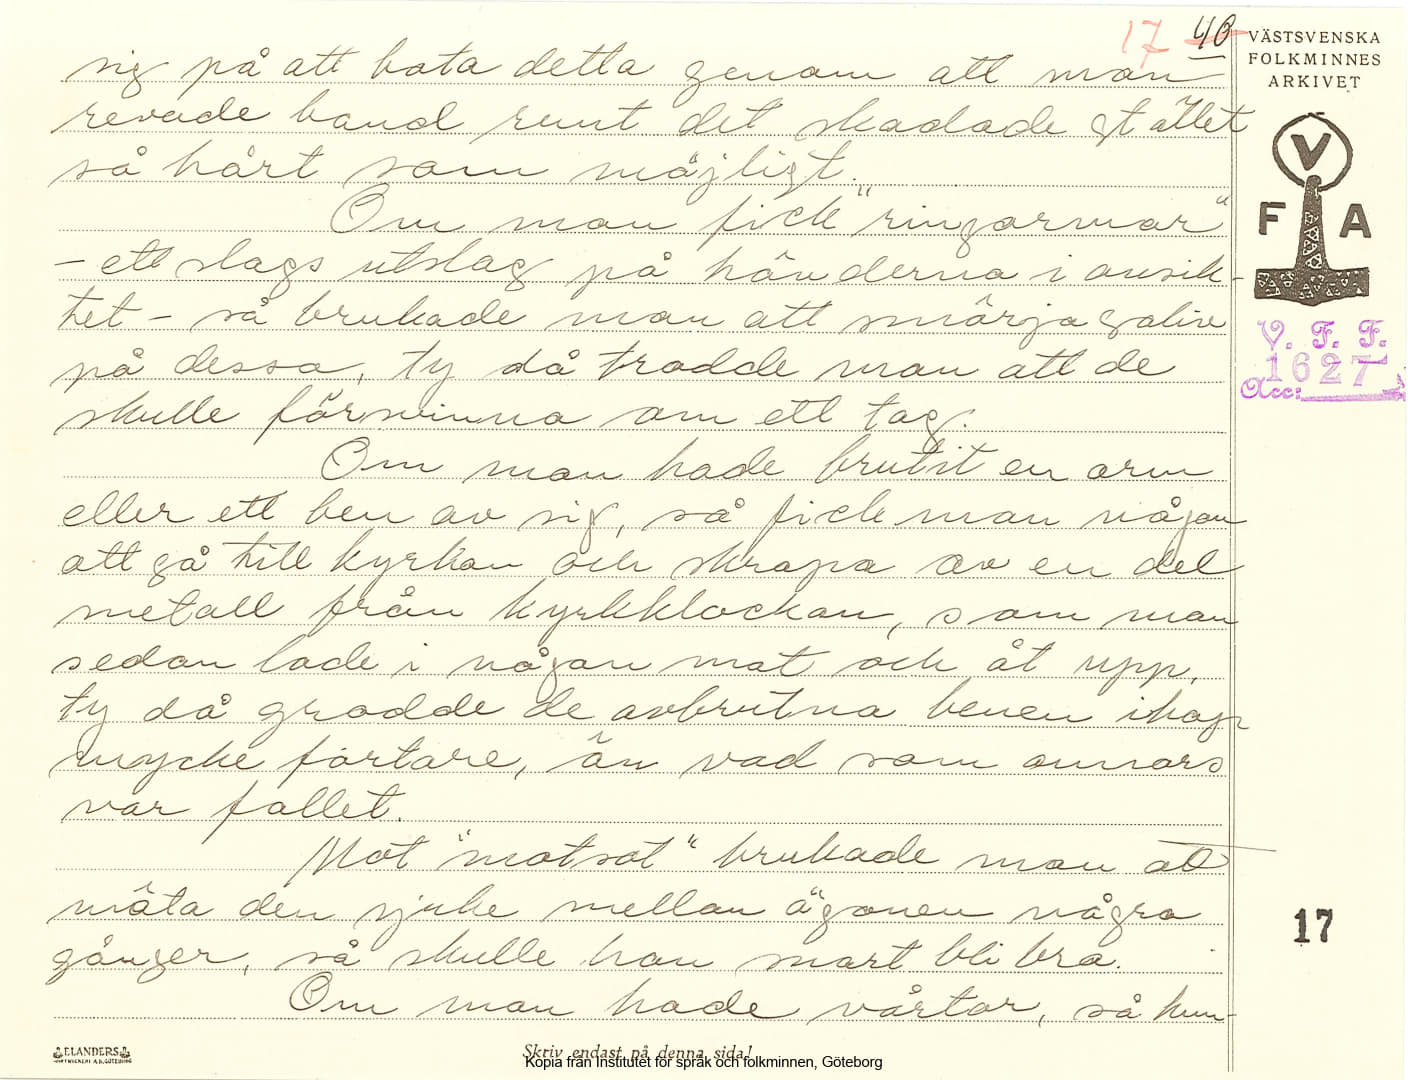 17 40
VÄSTSVENSKA
FOLKMINNES
ARKIVET
V
F A
V. F. F.
1627
Acc:
sig på att bota detta genom att man
revade band runt det skadade stället
så hårt som möjligt.
Om man fick "ringormar"
- ett slags utslag på händerna i ansik-
tet - så brukade man att smörja saliv
på dessa, ty då trodde man att de
skulle försvinna om ett tag.
Om man hade brutit en arm
eller ett ben av sig, så fick man någon
att gå till kyrkan och skrapa av en del
metall från kyrkklockan, som man
sedan lade i någon mat och åt upp,
ty då grodde de avbrutna benen ihop
mycke fortare, än vad som annars
var fallet.
Mot "motsot" brukade man att
mäta den sjuke mellan ögonen några
gånger, så skulle han snart bli bra.
Om man hade vårtor, så kun-
17
ELANDERS
Skriv endast på denna sida!
Kopia från Institutet för språk och folkminnen, Göteborg